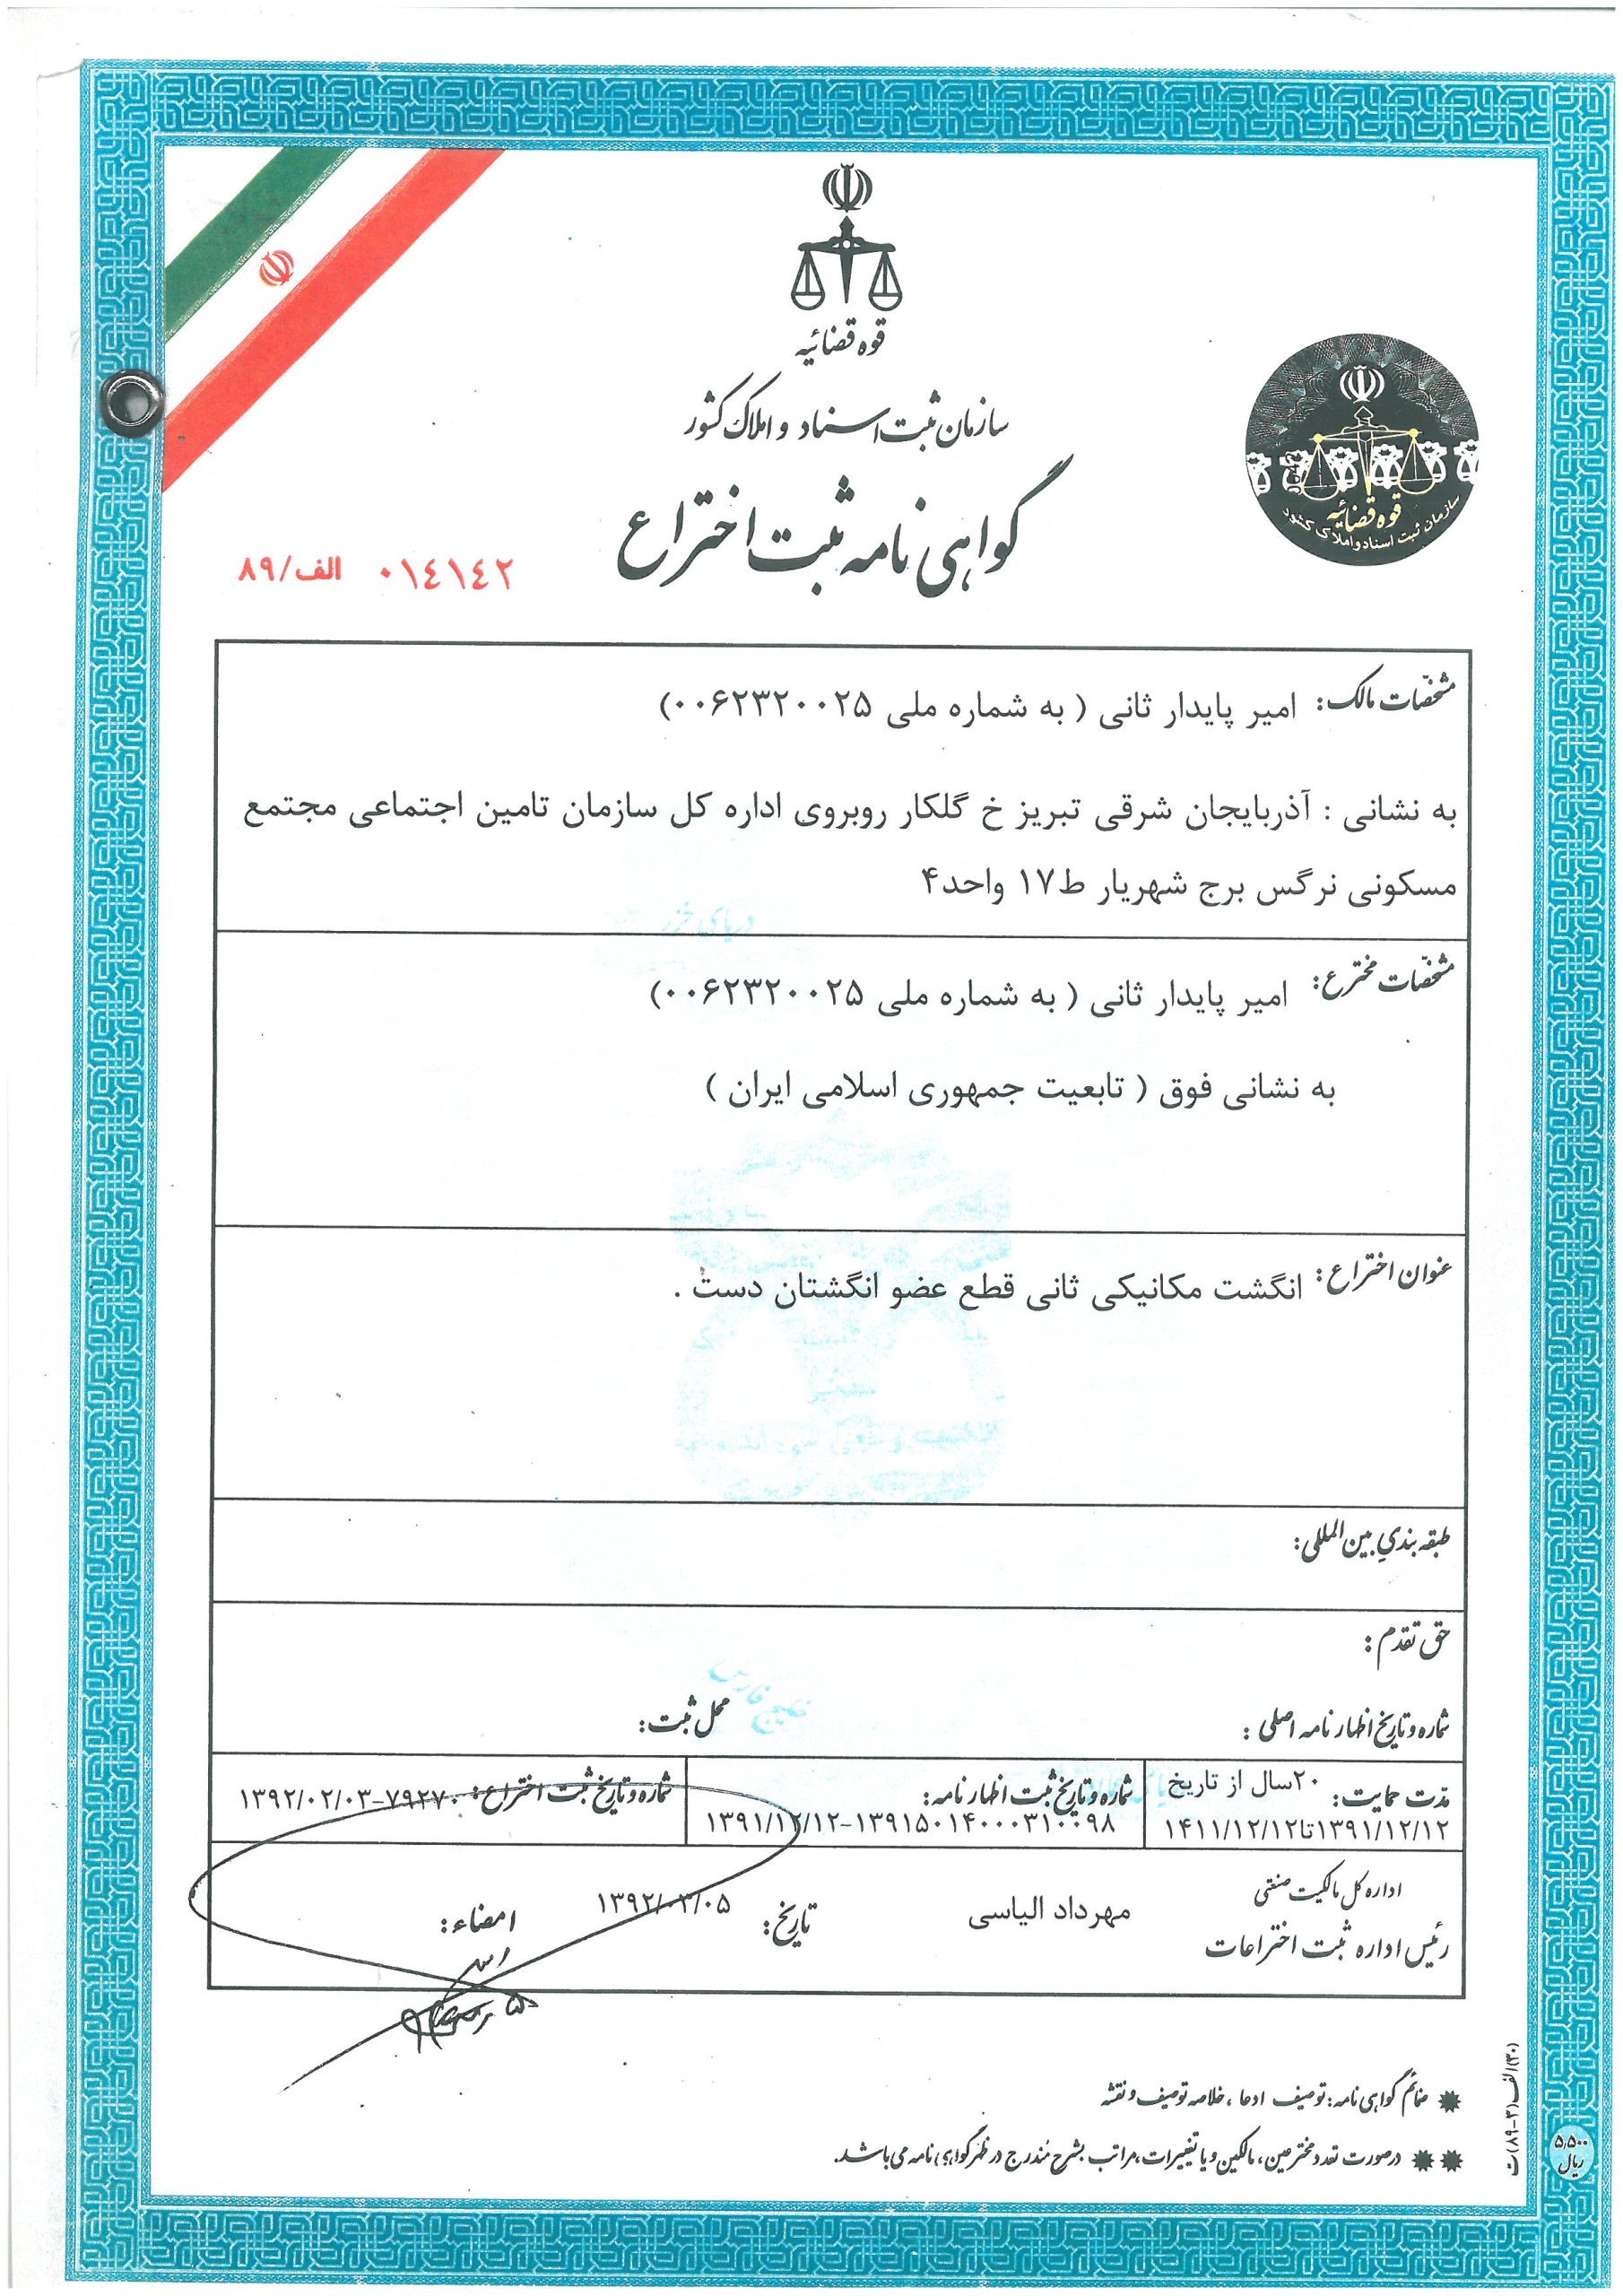 قوه قضائیه
سازمان ثبت اسناد و املاک کشور
گواهی نامه ثبت اختراع
۰۱٤۱٤۲ الف/۸۹
قوه قضائیه
سازمان ثبت اسناد و املاک کشور
مشخّصات مالک: امیر پایدار ثانی ( به شماره ملی ۰۰۶۲۳۲۰۰۲۵)
به نشانی : آذربایجان شرقی تبریز خ گلکار روبروی اداره کل سازمان تامین اجتماعی مجتمع
مسکونی نرگس برج شهریار ط۱۷ واحد۴
دریای خزر
مشخّصات مخترع: امیر پایدار ثانی ( به شماره ملی ۰۰۶۲۳۲۰۰۲۵)
به نشانی فوق ( تابعیت جمهوری اسلامی ایران )
عنوان اختراع: انگشت مکانیکی ثانی قطع عضو انگشتان دست .
طبقه بندیِ بین المللی:
حق تقدم:
شماره و تاریخ اظهار نامه اصلی : محل ثبت:
خلیج فارس
مدّت حمایت: ۲۰سال از تاریخ
۱۳۹۱/۱۲/۱۲تا۱۴۱۱/۱۲/۱۲
شماره و تاریخ ثبت اظهار نامه:
۱۳۹۱/۱۲/۱۲-۱۳۹۱۵۰۱۴۰۰۰۳۱۰۰۹۸
شماره و تاریخ ثبت اختراع: ۱۳۹۲/۰۲/۰۳-۷۹۲۷۰
اداره کل مالکیت صنعتی
رئیس اداره ثبت اختراعات
مهرداد الیاسی
تاریخ: ۱۳۹۲/۰۳/۰۵
امضاء:
ضمائم گواهی نامه: توصیف ادعا ، خلاصه توصیف و نقشه
درصورت تعدد مخترعین ، مالکین و یا تغییرات ،مراتب بشرح مُندرج در ظهر گواهی نامه می باشد.
۵,۵۰۰
ریال